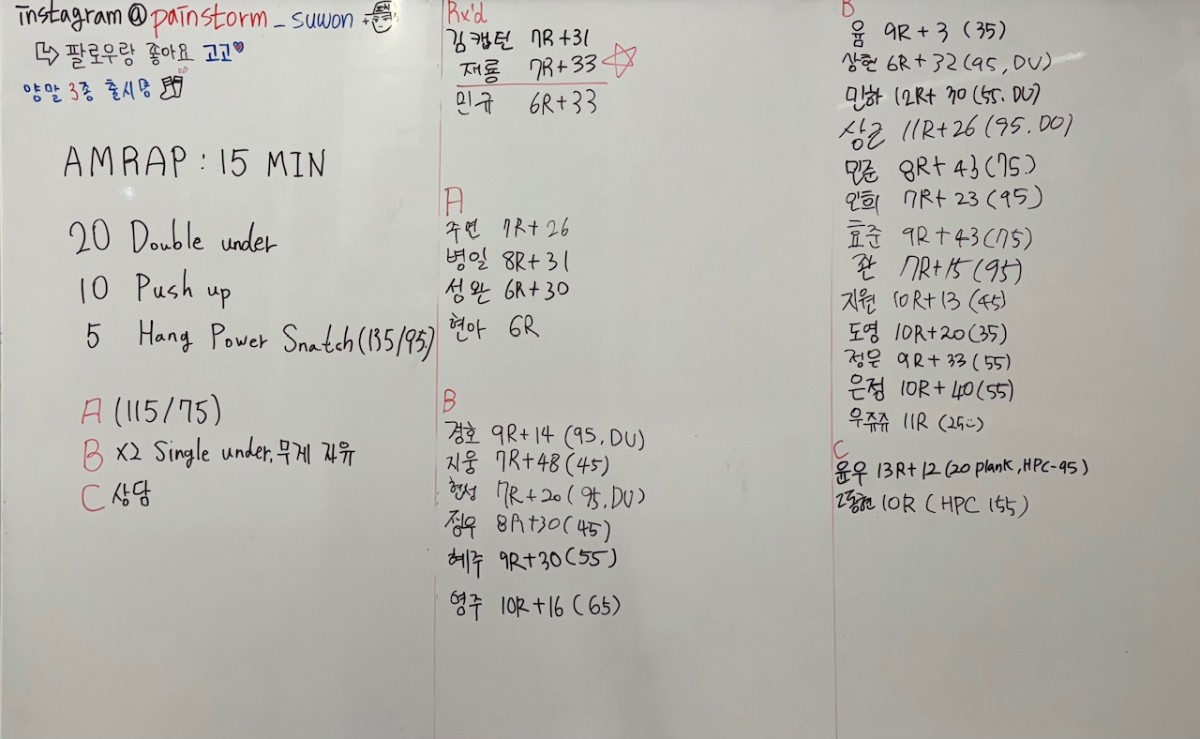 instagram@painstorm_suwon
팔로우랑 좋아요 고고
양말 3종 출시중
AMRAP : 15 MIN
20 Double under
10 Push up
5 Hang Power Snatch (135/95)
A (115/75)
B x2 Single under, 무게 자유
C 상담
Rx'd
김캡틴 7R+31
재롱 7R+33
민규 6R+33
A
주연 7R+26
병일 8R+31
성완 6R+30
현아 6R
B
경호 9R+14 (95, DU)
지웅 7R+48 (45)
현성 7R+20 (95, DU)
정우 8R+30 (45)
혜주 9R+30 (55)
영주 10R+16 (65)
B
윤 9R+3 (35)
상현 6R+32 (95, DU)
민하 12R+30 (55. DU)
상근 11R+26 (95. DU)
민준 8R+43 (75)
인희 7R+23 (95)
효준 9R+43 (75)
7R+15 (95)
지원 10R+13 (45)
도영 10R+20 (35)
정은 9R+33 (55)
은정 10R+40 (55)
우쥬쥬 11R
C
윤우 13R+12 (20 plank, HPC-95)
동현 10R (HPC 155)